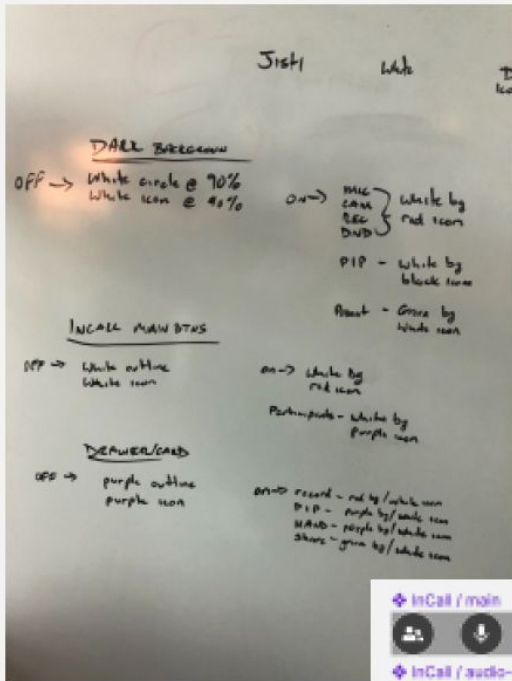 Jisti White
DARK BACKGROUN
OFF → White circle @ 90%
White icon @ 90%
ON → MIC
CAM
REC
DND
white bg
red icon
PIP - white bg
black icon
- Green bg
white icon
INCALL MAIN BTNS
OFF → White outline
White icon
on → white bg
red icon
Participants - white bg
purple icon
DRAWER/CARD
OFF → purple outline
purple icon
on → record - red bg/white icon
PIP - purple bg/white icon
HAND - purple bg/white icon
share - green bg/white icon
InCall / main
InCall / audio-